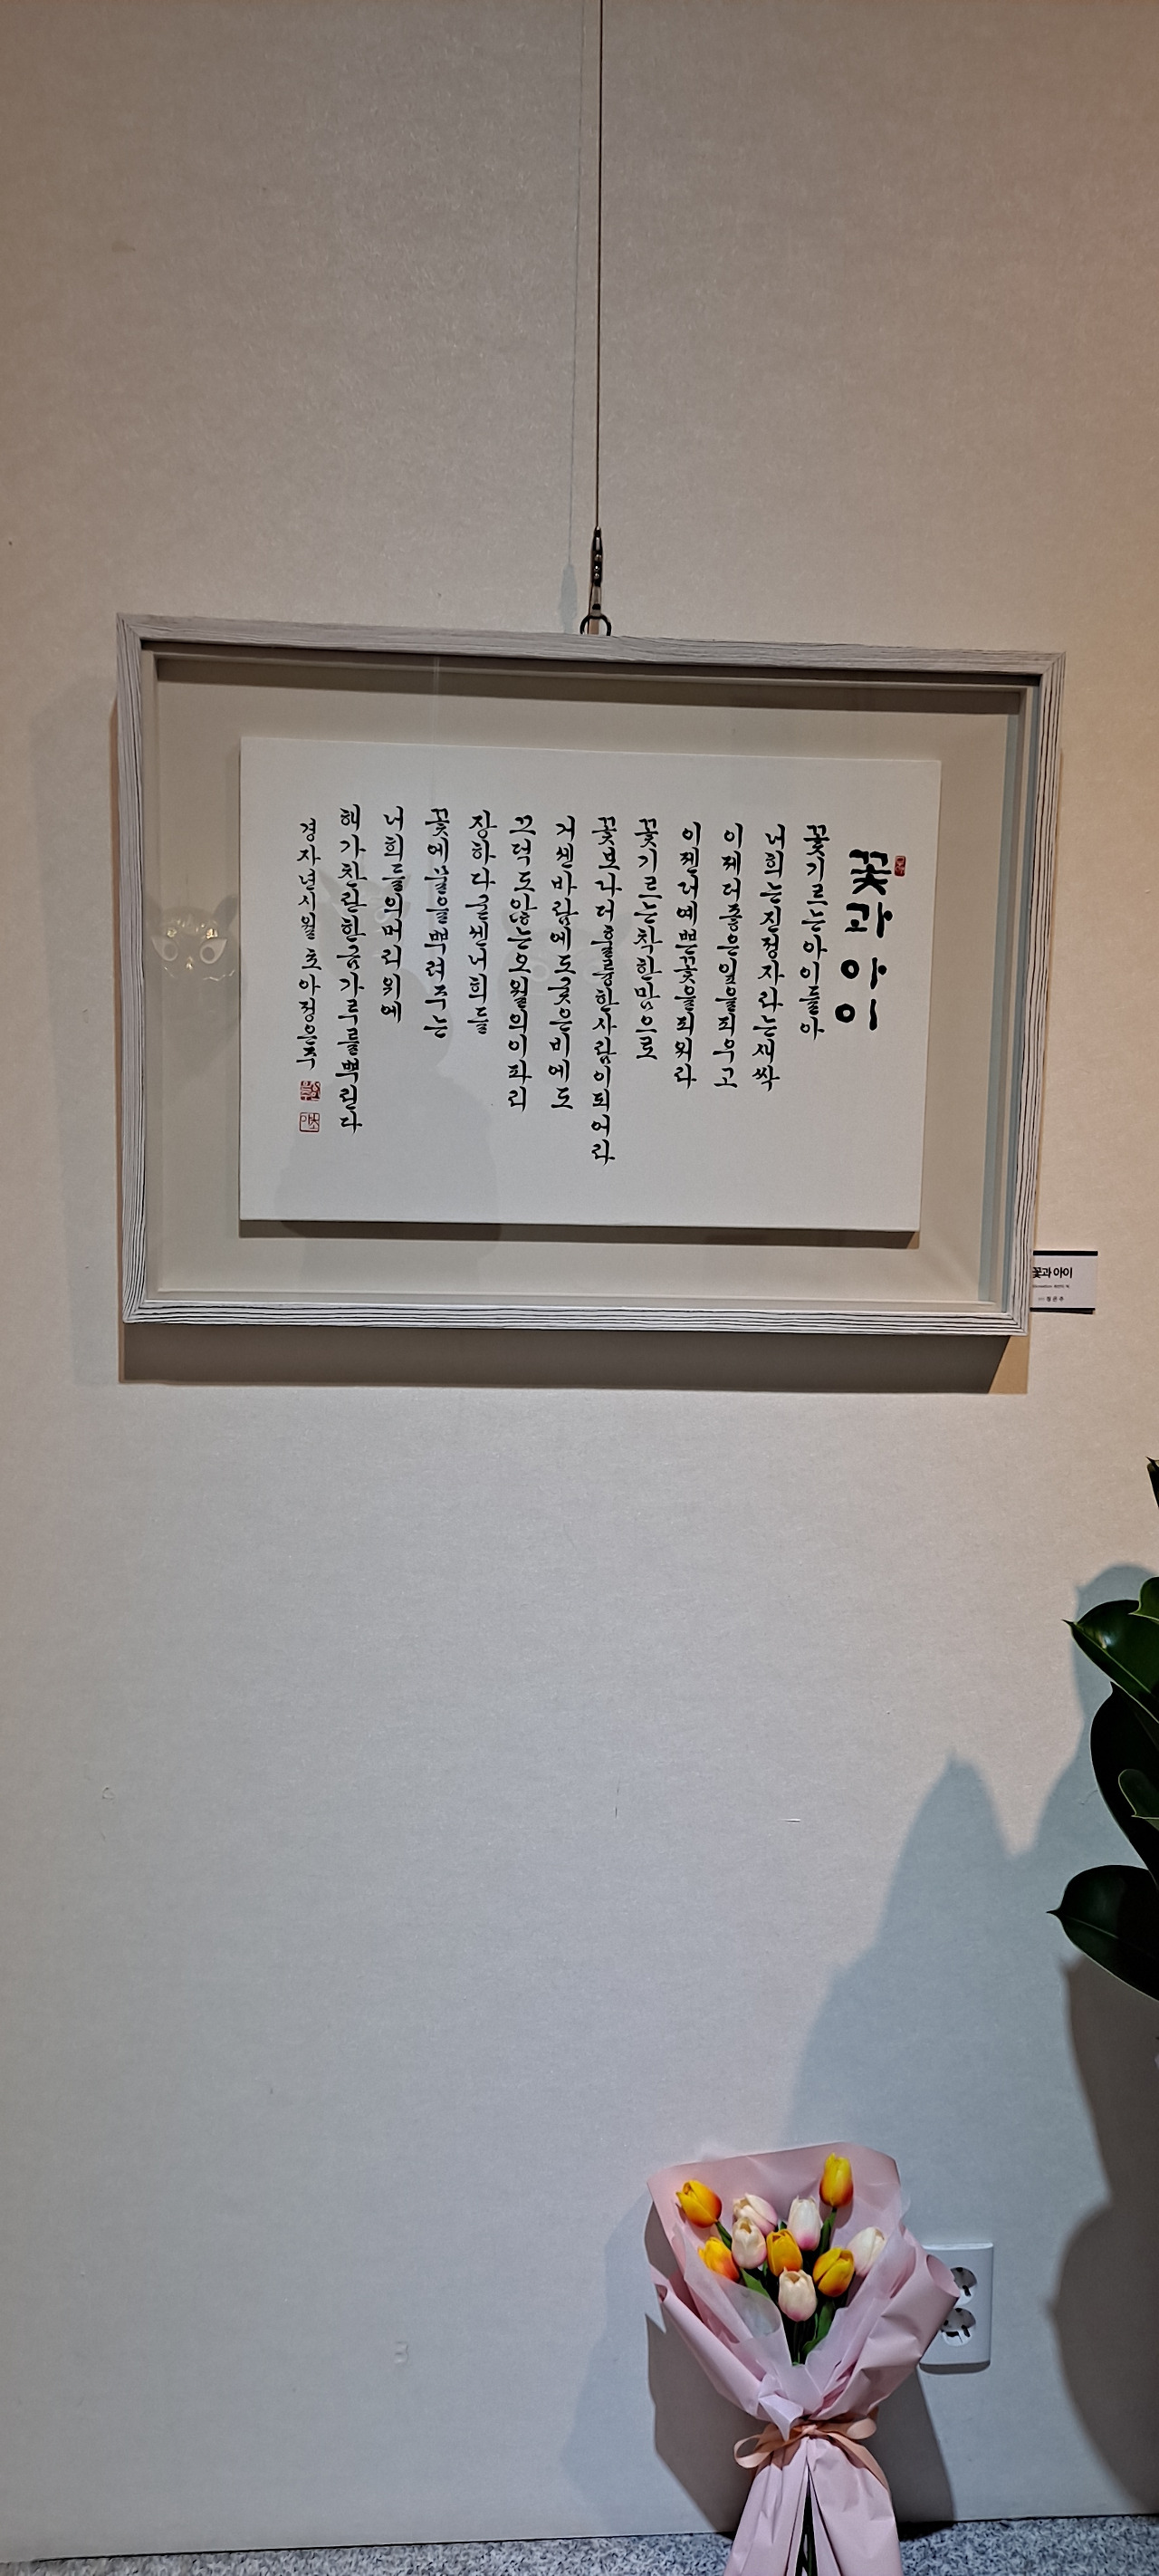 꽃과 아이
꽃 기르는 아이들아
너희는 진정 자라는 새싹
이제 더 좋은 잎을 피우고
이젠 더 예쁜 꽃을 피워라
꽃 기르는 착한 맘으로
꽃보다 더 훌륭한 사람이 되어라
거센 바람에도 궂은 비에도
끄덕도 않는 오월의 이파리
장하다 굳센 너희들
꽃에 물을 뿌려주는
너희들의 머리 위에
해가 찬란한 금가루를 뿌린다
경자년 시월 초아 정은주
꽃과 아이
정은주